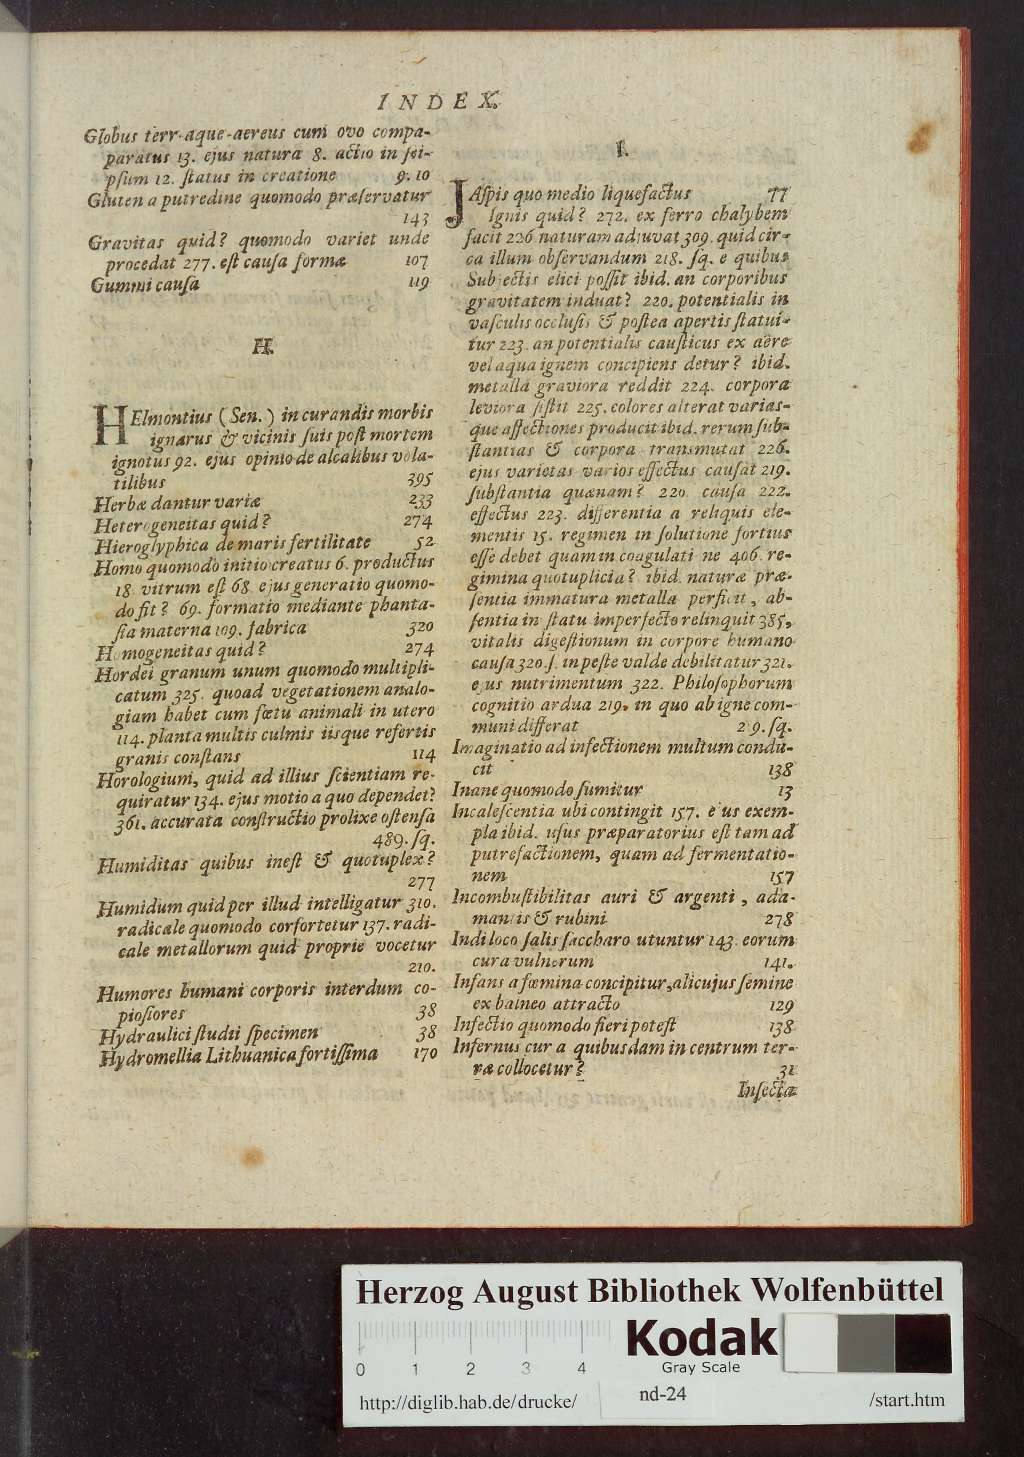 INDEX.
Globus terr-aque-aereus cum ovo compa-
paratus 13. ejus natura 8. actio in ſei-
pſum 12. ſtatus in creatione 9. 10
Gluten a putredine quomodo præſervatur
143
Gravitas quid? quomodo variet unde
procedat 277. eſt cauſa formæ 107
Gummi cauſa 119
H.
HElmontius (Sen.) in curandis morbis
ignarus & vicinis ſuis poſt mortem
ignotus 92. ejus opinio de alcalibus vola-
tilibus 395
Herbæ dantur variæ 233
Heterogeneitas quid? 274
Hieroglyphica de maris fertilitate 52
Homo quomodo initio creatus 6. productus
18. vitrum eſt 68. ejus generatio quomo-
do fit? 69. formatio mediante phanta-
ſia materna 109. fabrica 320
Homogeneitas quid? 274
Hordei granum unum quomodo multipli-
catum 325. quoad vegetationem analo-
giam habet cum fœtu animali in utero
114. planta multis culmis iisque refertis
granis conſtans 114
Horologium, quid ad illius ſcientiam re-
quiratur 134. ejus motio a quo dependet?
361. accurata conſtructio prolixe oſtenſa
489. ſq.
Humiditas quibus ineſt & quotuplex?
277
Humidum quid per illud intelligatur 310.
radicale quomodo corfortetur 137. radi-
cale metallorum quid proprie vocetur
210.
Humores humani corporis interdum co-
pioſiores 38
Hydraulici ſtudii ſpecimen 38
Hydromellia Lithuanica fortiſſima 170
I.
JAſpis quo medio liquefactus 77
Ignis quid? 272. ex ferro chalybem
facit 226 naturam adjuvat 309. quid cir-
ca illum obſervandum 218. ſq. e quibus
Subjectis elici poſſit ibid. an corporibus
gravitatem induat? 220. potentialis in
vaſculis occluſis & poſtea apertis ſtatui-
tur 223. an potentialis cauſticus ex aëre
vel aqua ignem concipiens detur? ibid.
metalla graviora reddit 224. corpora
leviora ſiſtit 225. colores alterat varias-
que affectiones producit ibid. rerum ſub-
ſtantias & corpora transmutat 226.
ejus varietas varios effectus cauſat 219.
ſubſtantia quænam? 220. cauſa 222.
effectus 223. differentia a reliquis ele-
mentis 15. regimen in ſolutione fortius
eſſe debet quam in coagulati ne 406. re-
gimina quotuplicia? ibid. naturæ præ-
ſentia immatura metalla perficit, ab-
ſentia in ſtatu imperfecto relinquit 385.
vitalis digeſtionum in corpore humano
cauſa 320. ſ. in peſte valde debilitatur 321.
ejus nutrimentum 322. Philoſophorum
cognitio ardua 219. in quo ab igne com-
muni differat 2 9. ſq.
Imaginatio ad infectionem multum condu-
cit 138
Inane quomodo ſumitur 13
Incaleſcentia ubi contingit 157. e us exem-
pla ibid. uſus præparatorius eſt tam ad
putrefactionem, quam ad fermentatio-
nem 157
Incombuſtibilitas auri & argenti, ada-
mantis & rubini 278
Indi loco ſalis ſaccharo utuntur 143. eorum
cura vulnerum 141.
Infans a fœmina concipitur, alicujus ſemine
ex balneo attracto 129
Infectio quomodo fieri poteſt 138
Infernus cur a quibusdam in centrum ter-
ræ collocetur? 31
Inſecta
Herzog August Bibliothek Wolfenbüttel
Kodak
Gray Scale
0 1 2 3 4
http://diglib.hab.de/drucke/ nd-24 /start.htm